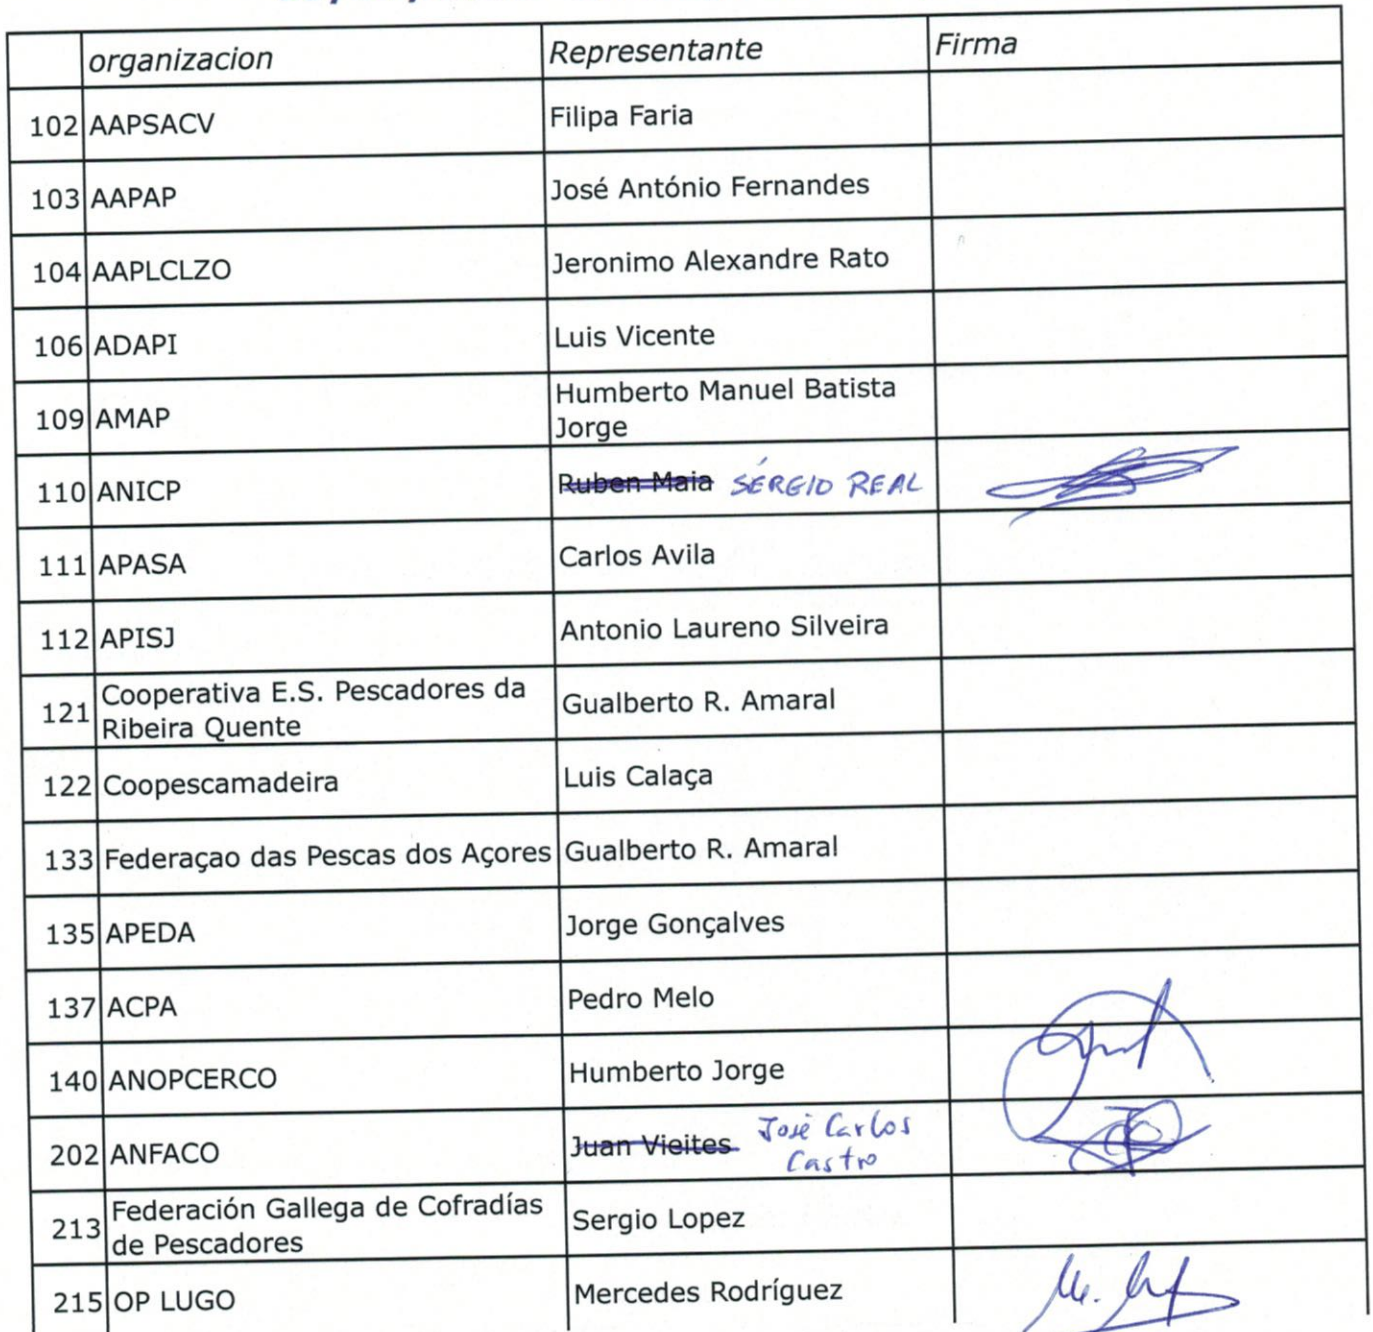 organizacion Representante Firma
102 AAPSACV Filipa Faria
103 AAPAP José António Fernandes
104 AAPLCLZO Jeronimo Alexandre Rato
106 ADAPI Luis Vicente
109 AMAP Humberto Manuel Batista
Jorge
110 ANICP Ruben Maia SÉRGIO REAL
111 APASA Carlos Avila
112 APISJ Antonio Laureno Silveira
121 Cooperativa E.S. Pescadores da
Ribeira Quente Gualberto R. Amaral
122 Coopescamadeira Luis Calaça
133 Federaçao das Pescas dos Açores Gualberto R. Amaral
135 APEDA Jorge Gonçalves
137 ACPA Pedro Melo
140 ANOPCERCO Humberto Jorge
202 ANFACO Juan Vieites José Carlos
Castro
213 Federación Gallega de Cofradías
de Pescadores Sergio Lopez
215 OP LUGO Mercedes Rodríguez